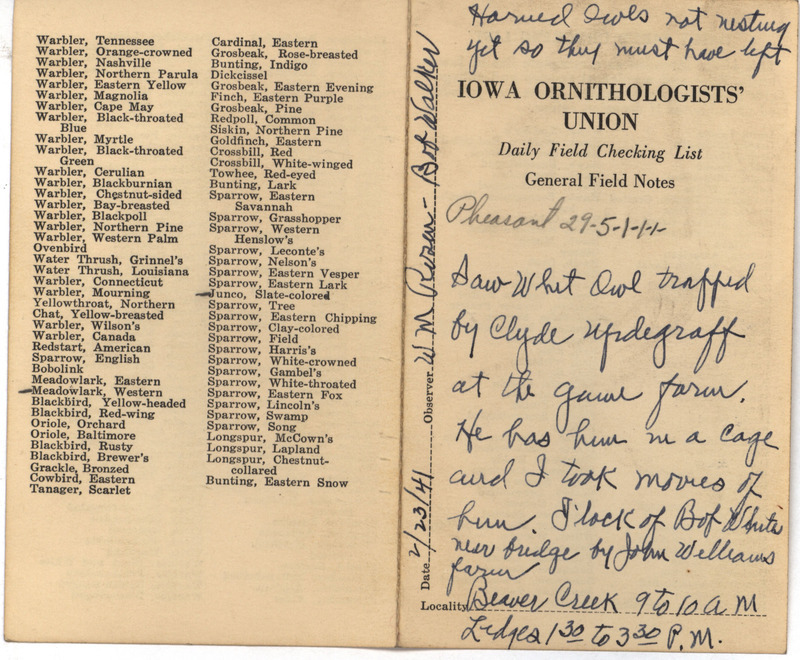 Warbler, Tennessee
Warbler, Orange-crowned
Warbler, Nashville
Warbler, Northern Parula
Warbler, Eastern Yellow
Warbler, Magnolia
Warbler, Cape May
Warbler, Black-throated
Blue
Warbler, Myrtle
Warbler, Black-throated
Green
Warbler, Cerulian
Warbler, Blackburnian
Warbler, Chestnut-sided
Warbler, Bay-breasted
Warbler, Blackpoll
Warbler, Northern Pine
Warbler, Western Palm
Ovenbird
Water Thrush, Grinnel's
Water Thrush, Louisiana
Warbler, Connecticut
Warbler, Mourning
Yellowthroat, Northern
Chat, Yellow-breasted
Warbler, Wilson's
Warbler, Canada
Redstart, American
Sparrow, English
Bobolink
Meadowlark, Eastern
Meadowlark, Western
Blackbird, Yellow-headed
Blackbird, Red-wing
Oriole, Orchard
Oriole, Baltimore
Blackbird, Rusty
Blackbird, Brewer's
Grackle, Bronzed
Cowbird, Eastern
Tanager, Scarlet
Cardinal, Eastern
Grosbeak, Rose-breasted
Bunting, Indigo
Dickcissel
Grosbeak, Eastern Evening
Finch, Eastern Purple
Grosbeak, Pine
Redpoll, Common
Siskin, Northern Pine
Goldfinch, Eastern
Crossbill, Red
Crossbill, White-winged
Towhee, Red-eyed
Bunting, Lark
Sparrow, Eastern
Savannah
Sparrow, Grasshopper
Sparrow, Western
Henslow's
Sparrow, Leconte's
Sparrow, Nelson's
Sparrow, Eastern Vesper
Sparrow, Eastern Lark
Junco, Slate-colored
Sparrow, Tree
Sparrow, Eastern Chipping
Sparrow, Clay-colored
Sparrow, Field
Sparrow, Harris's
Sparrow, White-crowned
Sparrow, Gambel's
Sparrow, White-throated
Sparrow, Eastern Fox
Sparrow, Lincoln's
Sparrow, Swamp
Sparrow, Song
Longspur, McCown's
Longspur, Lapland
Longspur, Chestnut-
collared
Bunting, Eastern Snow
Date 2/23/41 Observer W M - Bob Walker
Horned Owls not nesting
yet so they must have left
IOWA ORNITHOLOGISTS'
UNION
Daily Field Checking List
General Field Notes
Pheasant 29-5-1-1-1-
Saw Whet Owl trapped
by Clyde Updegraff
at the game farm.
He has him in a cage
and I took movies of
him. Flock of Bob White
near bridge by John Williams
farm
Locality Beaver Creek 9 to 10 a M
Ledges 1 30 to 3 30 P.M.